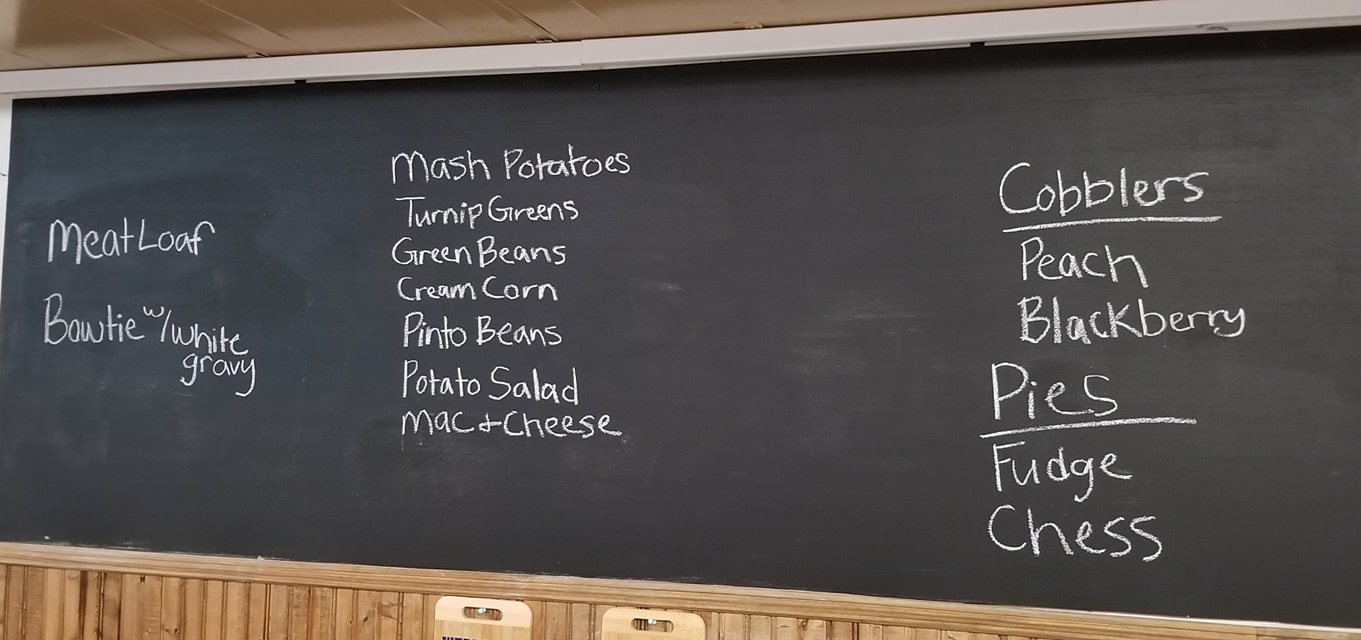 Meat Loaf
Bowtie w/white
gravy
Mash Potatoes
Turnip Greens
Green Beans
Cream Corn
Pinto Beans
Potato Salad
Mac + Cheese
Cobblers
Peach
Blackberry
Pies
Fudge
Chess